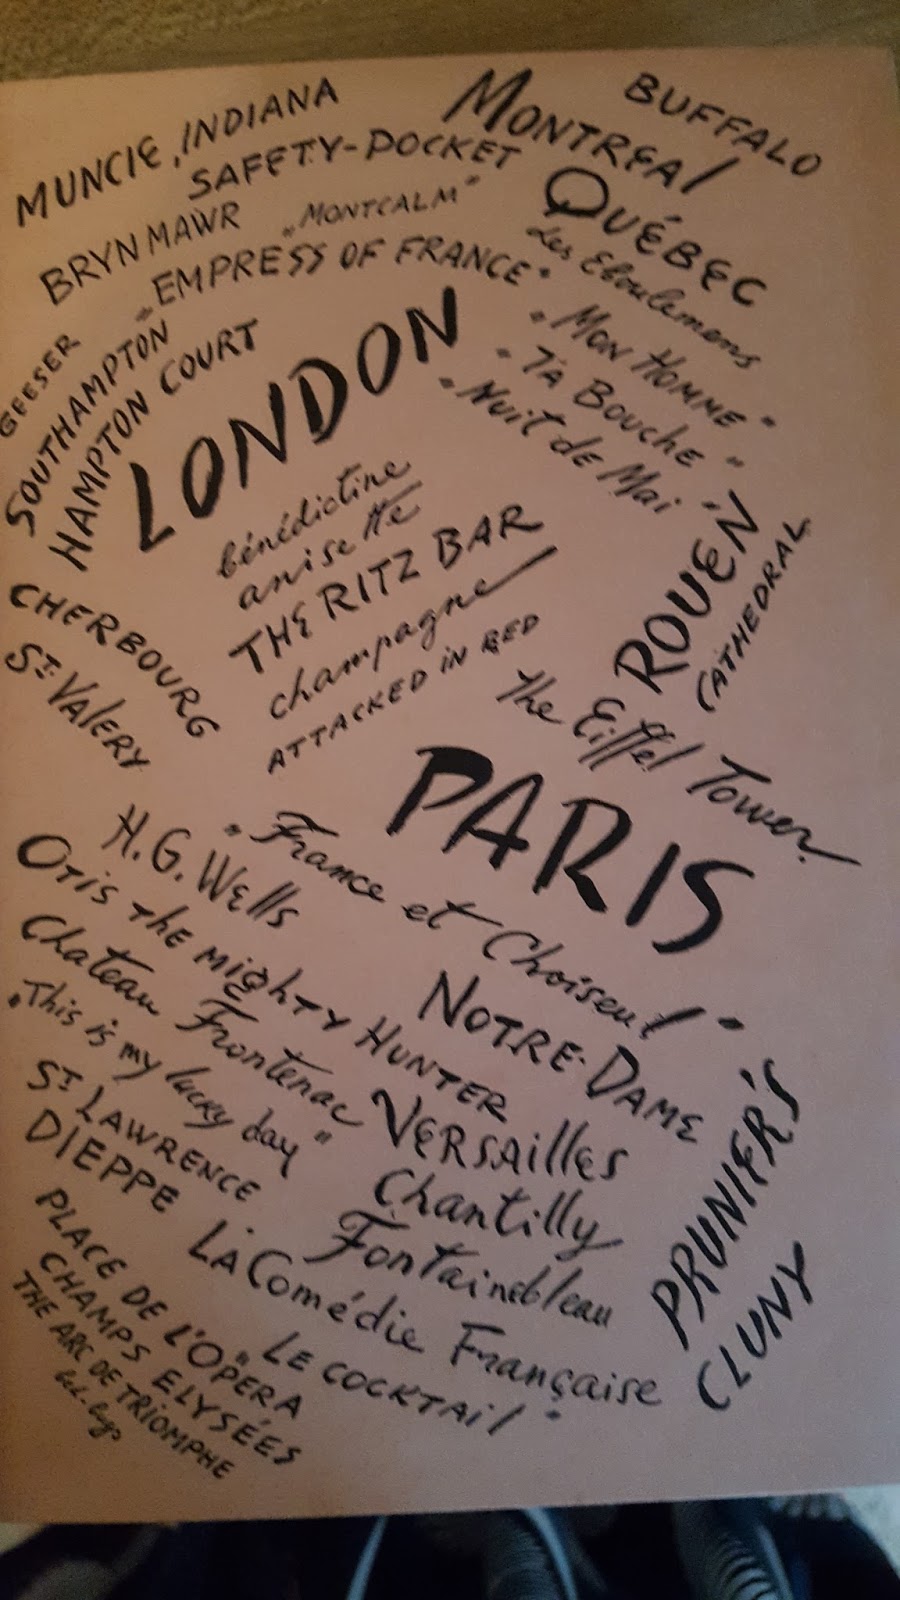 MUNCIE, INDIANA
SAFETY-POCKET
MONTREAL
BUFFALO
BRYN MAWR
„MONTCALM"
QUÉBEC
Les Eboulemens
„EMPRESS OF FRANCE"
GEESER
SOUTHAMPTON
HAMPTON COURT
LONDON
"MON HOMME"
"TA BOUCHE"
"Nuit de Mai
bénédictine
anisette
THE RITZ BAR
champagne
ATTACKED IN BED
ROUEN
CATHEDRAL
CHERBOURG
ST. VALERY
The Eiffel Tower
PARIS
H.G. Wells
"France et Choiseul"
OTIS THE MIGHTY HUNTER
Chateau Frontenac
"This is my lucky day"
NOTRE-DAME
ST LAWRENCE
VERSAILLES
DIEPPE
Chantilly
Fontainebleau
PRUNIER'S
CLUNY
LA Comédie Française
PLACE DE L'OPERA
"LE COCKTAIL"
CHAMPS ELYSÉES
THE ARC DE TRIOMPHE
bed-bugs